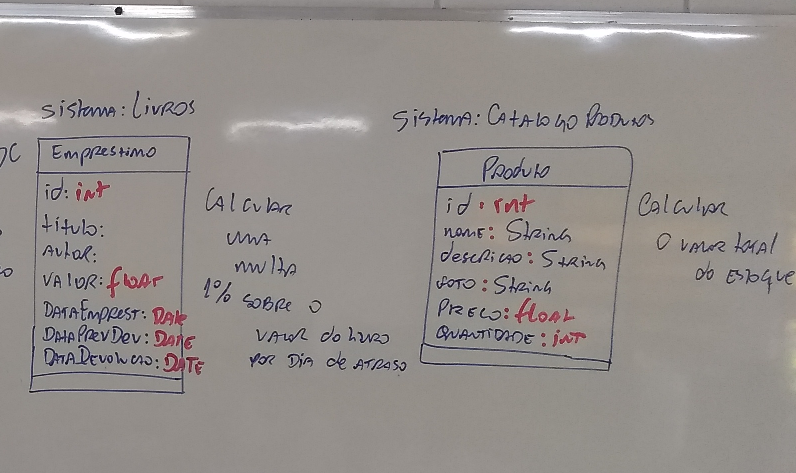 Sistema: Livros
Emprestimo
id: int
titulo:
Autor:
VALOR: float
DATAEmprest: Date
DATAPrevDev: DATE
DATADevolucao: DATE
CAlculAR
umA
multA
1% SOBRE o
VALOR do livro
por DiA de ATRASO
Sistema: CATALOGO PRODUTOS
Produto
id: int
nome: String
descricao: String
foto: String
PRECO: float
QUANTIDADE: int
CAlculAR
O VALOR total
do ESTOQUE